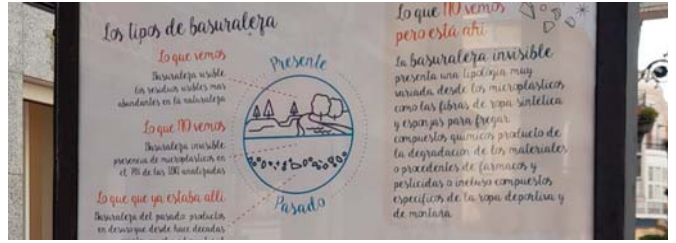 Los tipos de basuraleza
Lo que vemos
Basuraleza visible
los residuos visibles mas
abundantes en la naturaleza
Lo que NO vemos
Basuraleza invisible
presencia de microplasticos en
el
de las
analizadas
Lo que que ya estaba alli
Basuraleza del pasado productos
en desuso que desde hace decadas
Presente
Pasado
Lo que NO vemos
pero está ahi
La basuraleza invisible
presenta una tipologia muy
variada desde los microplasticos
como las fibras de ropa sintetica
y esponjas para fregar
compuestos quimicos producto de
la degradación de los materiales
o procedentes de farmacos y
pesticidas o incluso compuestos
especificos de la ropa deportiva y
de montaña